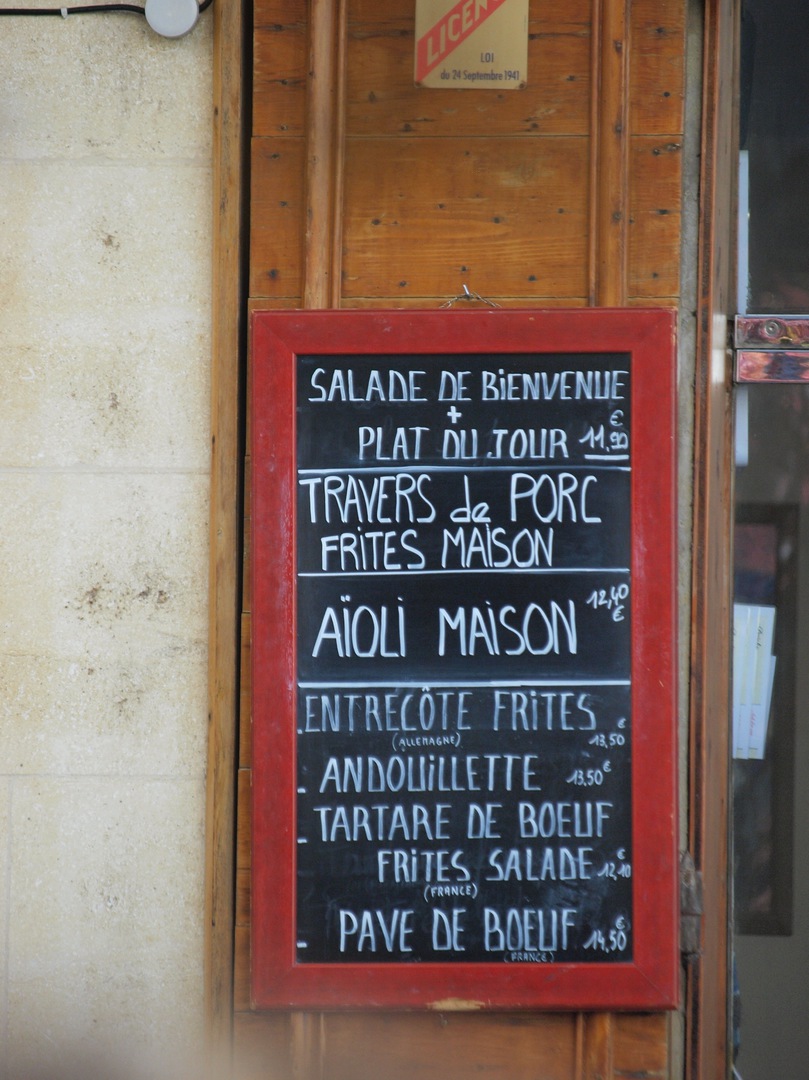 LICEN
LOI
du 24 Septembre 1941
SALADE DE BIENVENUE
+
PLAT DU JOUR 11,90 €
TRAVERS de PORC
FRITES MAISON
AÏOLI MAISON 12,40 €
ENTRECÔTE FRITES
(ALLEMAGNE) 13,50 €
- ANDOUILLETTE 13,50 €
- TARTARE DE BOEUF
FRITES SALADE 12,10 €
(FRANCE)
- PAVE DE BOEUF 14,50 €
(FRANCE)